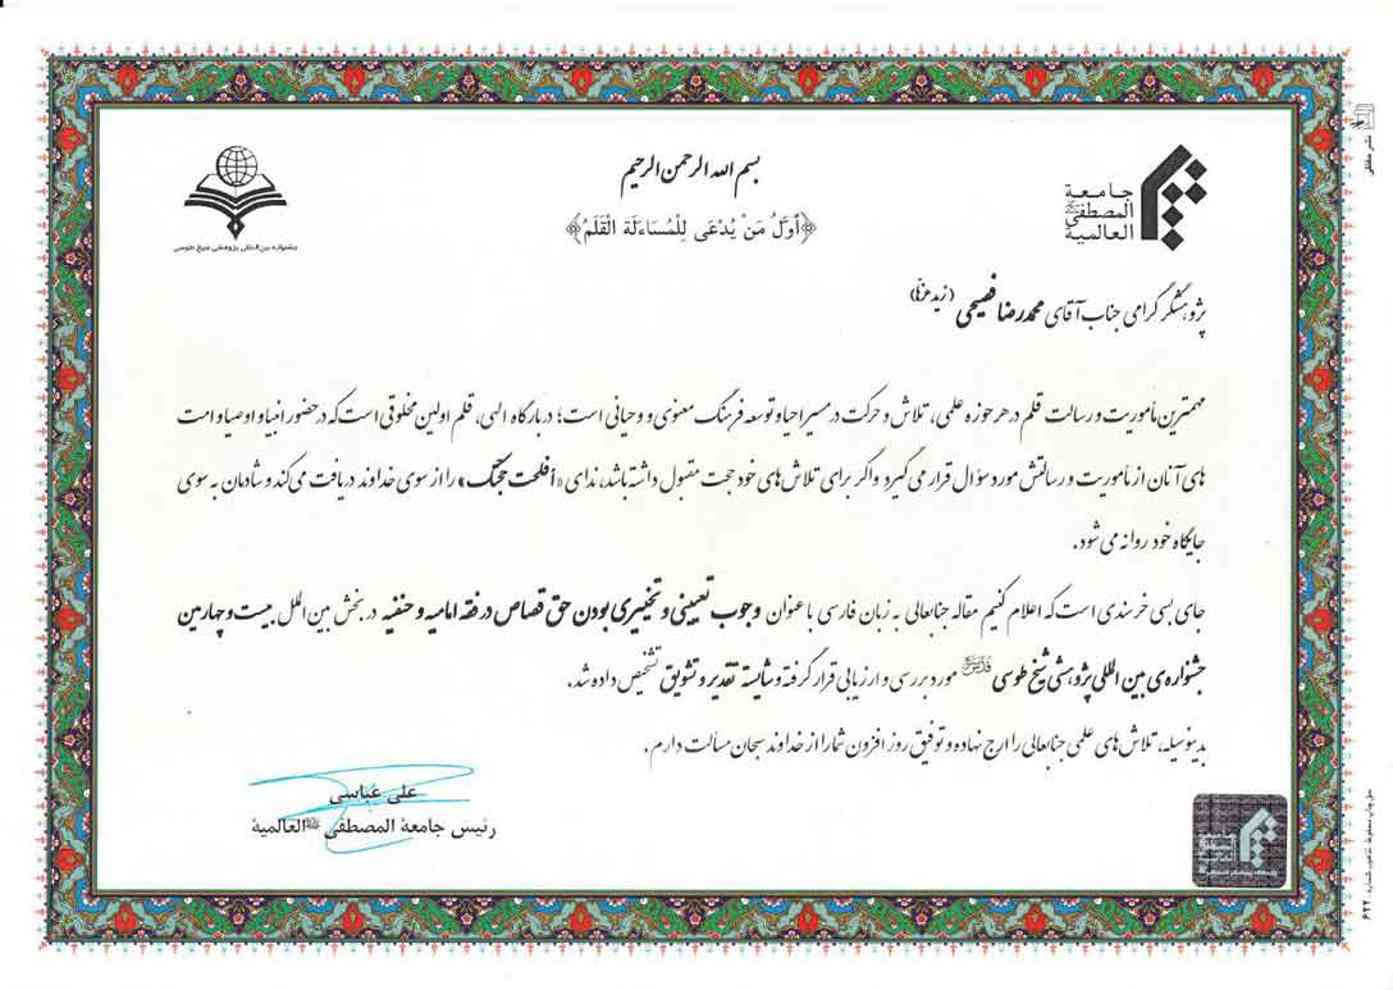 بسم الله الرحمن الرحیم
﴿أَوَّلُ مَنْ يُدْعَى لِلْمُسَاءَلَة الْقَلَمُ﴾
جامعة
المصطفی ﷺ
العالمیة
جشنواره بین‌المللی پژوهشی شیخ طوسی
پژوهشگر گرامی جناب آقای محمدرضا فصیحی (زید عزّه)
مهمترین مأموریت و رسالت قلم در هر حوزه علمی، تلاش و حرکت در مسیر احیا و توسعه فرهنگ معنوی و وحیانی است؛ در بارگاه الهی، قلم اولین مخلوقی است که در حضور انبیا و اوصیا و امت
های آنان از مأموریت و رسالتش مورد سؤال قرار می گیرد و اگر برای تلاش های خود حجت مقبول داشته باشد، ندای «أفلحت حجتک» را از سوی خداوند دریافت می کند و شادمان به سوی
جایگاه خود روانه می شود.
جای بسی خرسندی است که اعلام کنیم مقاله جنابعالی به زبان فارسی با عنوان وجوب تعیینی و تخییری بودن حق قصاص در فقه امامیه و حنفیه در بخش بین الملل بیست و چهارمین
جشنواره‌ی بین المللی پژوهشی شیخ طوسی مورد بررسی و ارزیابی قرار گرفته و شایسته تقدیر و تشویق تشخیص داده شد.
بدینوسیله، تلاش های علمی جنابعالی را ارج نهاده و توفیق روز افزون شما را از خداوند سبحان مسألت دارم.
علی عباسی
رئیس جامعة المصطفی ﷺ العالمیة